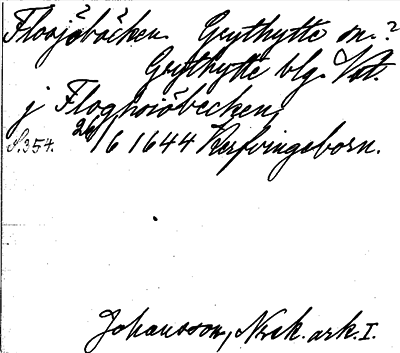 Flosjöbäcken. Grythytte sn.?
Grythytte blg. Vstm.
j Floghsiöbecken
S. 354. 26/6 1644 Kerfvingeborn.
Johansson, Norak. ark. I.